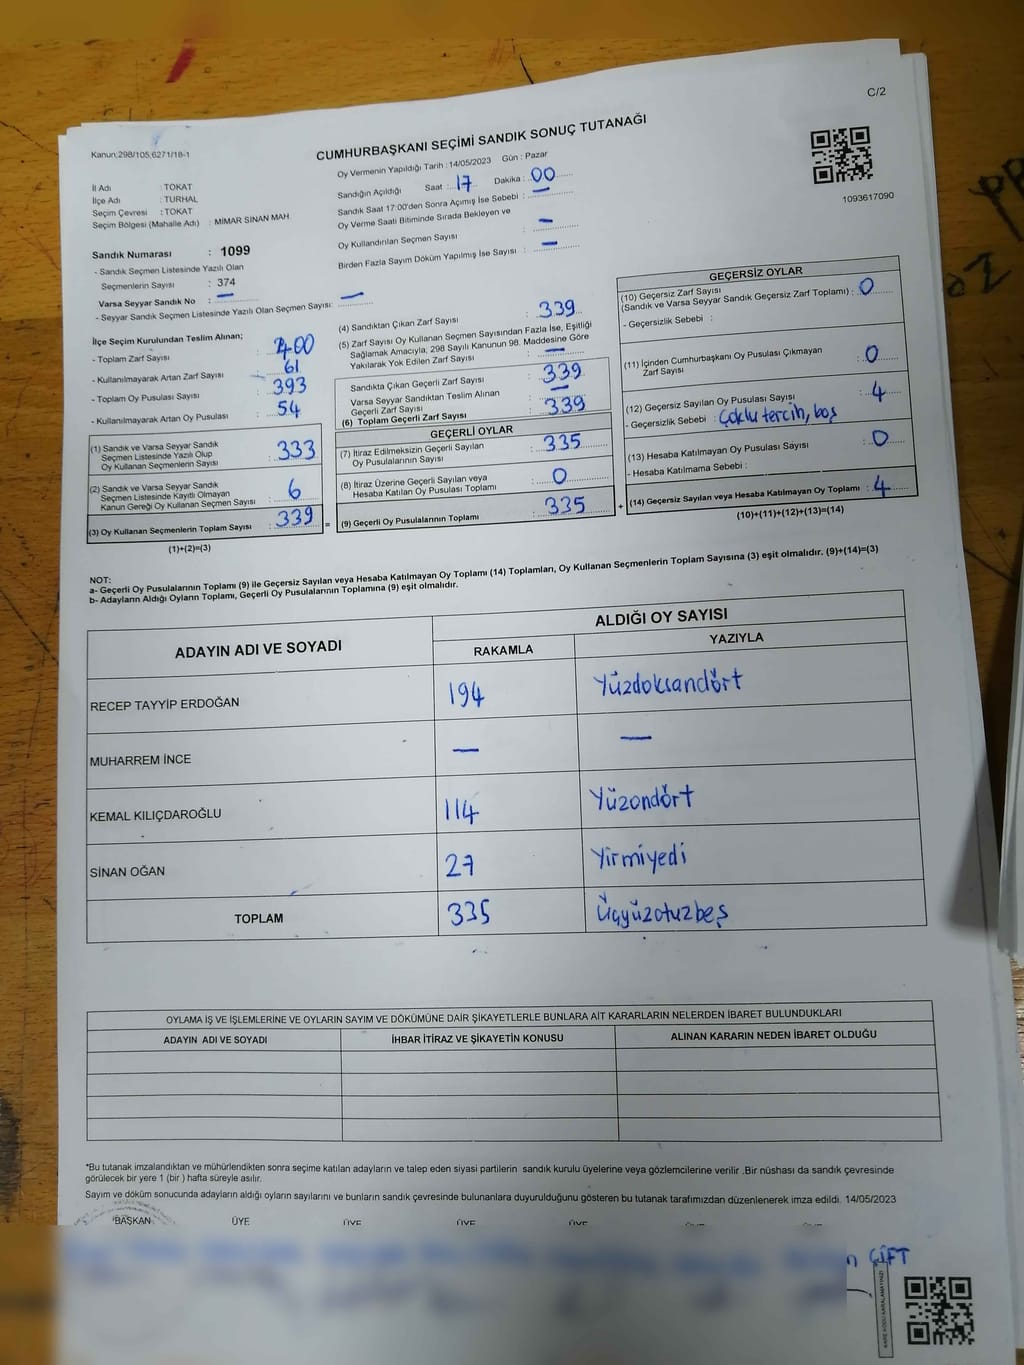 C/2
Kanun:298/105,6271/18-1
CUMHURBAŞKANI SEÇİMİ SANDIK SONUÇ TUTANAĞI
Oy Vermenin Yapıldığı Tarih : 14/05/2023 Gün : Pazar
1093617090
İl Adı : TOKAT
İlçe Adı : TURHAL
Seçim Çevresi : TOKAT
Seçim Bölgesi (Mahalle Adı) : MİMAR SİNAN MAH.
Sandık Numarası : 1099
- Sandık Seçmen Listesinde Yazılı Olan
Seçmenlerin Sayısı : 374
Varsa Seyyar Sandık No : —
- Seyyar Sandık Seçmen Listesinde Yazılı Olan Seçmen Sayısı: —
Sandığın Açıldığı Saat : 17 Dakika : 00
Sandık Saat 17:00'den Sonra Açımış İse Sebebi : —
Oy Verme Saati Bitiminde Sırada Bekleyen ve
Oy Kullandırılan Seçmen Sayısı : —
Birden Fazla Sayım Döküm Yapılmış İse Sayısı : —
İlçe Seçim Kurulundan Teslim Alınan;
- Toplam Zarf Sayısı : 400
- Kullanılmayarak Artan Zarf Sayısı : 61
- Toplam Oy Pusulası Sayısı : 393
- Kullanılmayarak Artan Oy Pusulası : 54
(1) Sandık ve Varsa Seyyar Sandık
Seçmen Listesinde Yazılı Olup
Oy Kullanan Seçmenlerin Sayısı : 333
(2) Sandık ve Varsa Seyyar Sandık
Seçmen Listesinde Kayıtlı Olmayan
Kanun Gereği Oy Kullanan Seçmen Sayısı : 6
(3) Oy Kullanan Seçmenlerin Toplam Sayısı : 339 =
(1)+(2)=(3)
(4) Sandıktan Çıkan Zarf Sayısı : 339
(5) Zarf Sayısı Oy Kullanan Seçmen Sayısından Fazla İse, Eşitliği
Sağlamak Amacıyla, 298 Sayılı Kanunun 98. Maddesine Göre
Yakılarak Yok Edilen Zarf Sayısı : —
Sandıkta Çıkan Geçerli Zarf Sayısı : 339
Varsa Seyyar Sandıktan Teslim Alınan
Geçerli Zarf Sayısı : —
(6) Toplam Geçerli Zarf Sayısı : 339
GEÇERLİ OYLAR
(7) İtiraz Edilmeksizin Geçerli Sayılan
Oy Pusulalarının Sayısı : 335
(8) İtiraz Üzerine Geçerli Sayılan veya
Hesaba Katılan Oy Pusulası Toplamı : 0
(9) Geçerli Oy Pusulalarının Toplamı : 335 +
GEÇERSİZ OYLAR
(10) Geçersiz Zarf Sayısı
(Sandık ve Varsa Seyyar Sandık Geçersiz Zarf Toplamı) : 0
- Geçersizlik Sebebi :
(11) İçinden Cumhurbaşkanı Oy Pusulası Çıkmayan
Zarf Sayısı : 0
(12) Geçersiz Sayılan Oy Pusulası Sayısı : 4
- Geçersizlik Sebebi : Çoklu tercih, boş
(13) Hesaba Katılmayan Oy Pusulası Sayısı : 0
- Hesaba Katılmama Sebebi :
(14) Geçersiz Sayılan veya Hesaba Katılmayan Oy Toplamı : 4
(10)+(11)+(12)+(13)=(14)
NOT:
a- Geçerli Oy Pusulalarının Toplamı (9) ile Geçersiz Sayılan veya Hesaba Katılmayan Oy Toplamı (14) Toplamları, Oy Kullanan Seçmenlerin Toplam Sayısına (3) eşit olmalıdır. (9)+(14)=(3)
b- Adayların Aldığı Oyların Toplamı, Geçerli Oy Pusulalarının Toplamına (9) eşit olmalıdır.
ADAYIN ADI VE SOYADI ALDIĞI OY SAYISI
RAKAMLA YAZIYLA
RECEP TAYYİP ERDOĞAN 194 Yüzdoksandört
MUHARREM İNCE — —
KEMAL KILIÇDAROĞLU 114 Yüzondört
SİNAN OĞAN 27 Yirmiyedi
TOPLAM 335 Üçyüzotuzbeş
OYLAMA İŞ VE İŞLEMLERİNE VE OYLARIN SAYIM VE DÖKÜMÜNE DAİR ŞİKAYETLERLE BUNLARA AİT KARARLARIN NELERDEN İBARET BULUNDUKLARI
ADAYIN ADI VE SOYADI İHBAR İTİRAZ VE ŞİKAYETİN KONUSU ALINAN KARARIN NEDEN İBARET OLDUĞU
*Bu tutanak imzalandıktan ve mühürlendikten sonra seçime katılan adayların ve talep eden siyasi partilerin sandık kurulu üyelerine veya gözlemcilerine verilir .Bir nüshası da sandık çevresinde
görülecek bir yere 1 (bir ) hafta süreyle asılır.
Sayım ve döküm sonucunda adayların aldığı oyların sayılarını ve bunların sandık çevresinde bulunanlara duyurulduğunu gösteren bu tutanak tarafımızdan düzenlenerek imza edildi. 14/05/2023
BAŞKAN ÜYE ÜYE ÜYE ÜYE
ÇİFT
KARE KODU KARALAMAYINIZ!